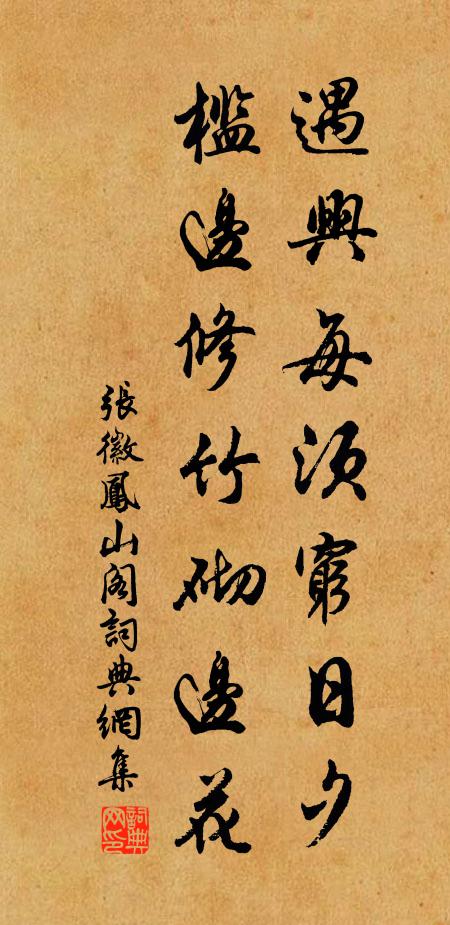 遇興每須窮日夕
檻邊修竹砌邊花
張徽鳳山閣詞典網集
詞典网印